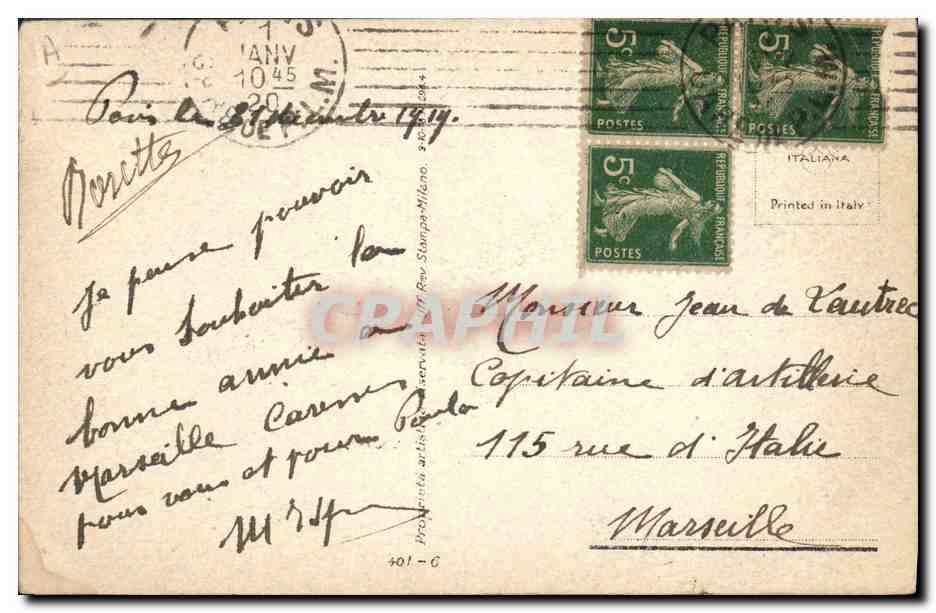 A
1
JANV
10 45
20
5c
REPUBLIQUE FRANÇAISE
POSTES
5c
REPUBLIQUE FRANÇAISE
5c
REPUBLIQUE FRANÇAISE
POSTES
ITALIANA
Printed in Italy
le 31 décembre 1919.
je pense pouvoir
vous souhaiter la
bonne année
Marseille
pour vous et pour Paula
Proprieta artistica riservata Uff. Rev. Stampa-Milano.
401-C
Monsieur Jean de Lautrec
Capitaine d'artillerie
115 rue d'Italie
Marseille
CPAPHIL